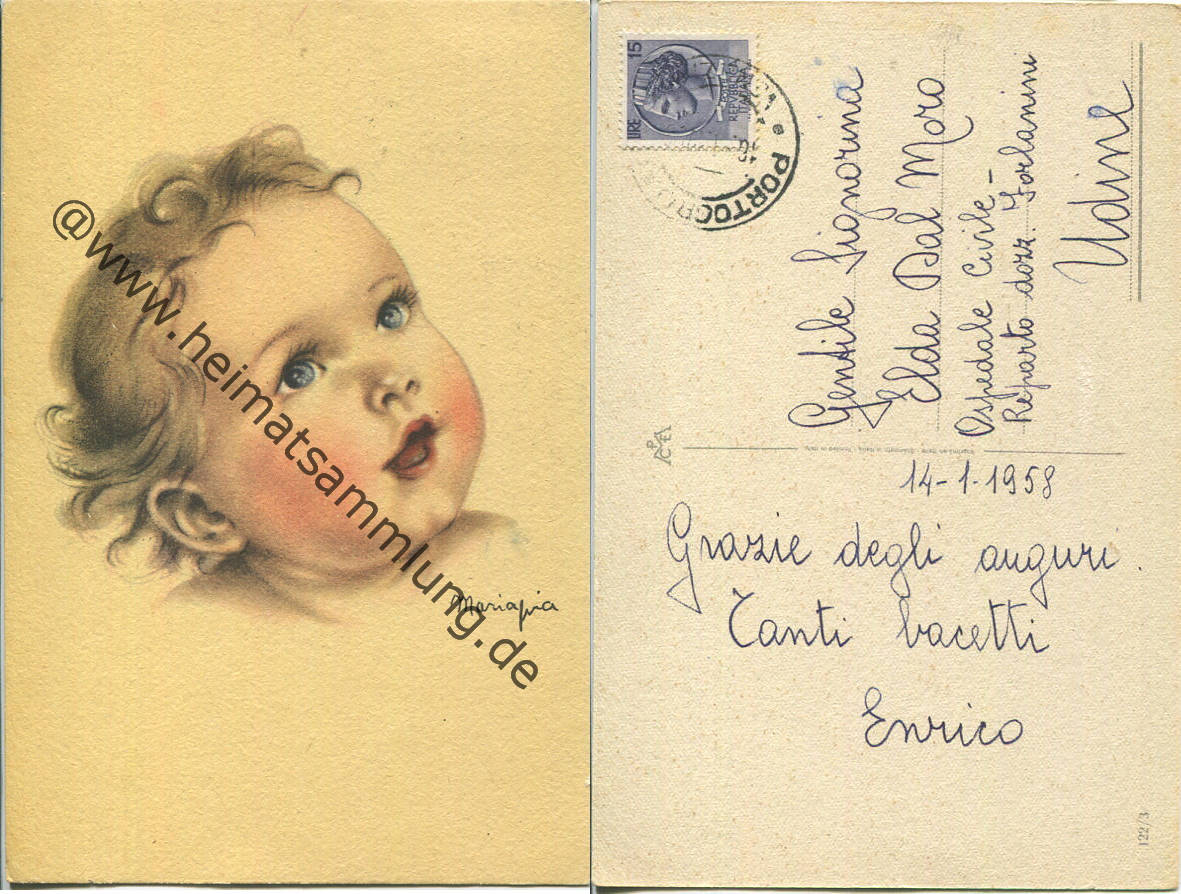 @www.heimatsammlung.de
Mariapia
LIRE 15
POSTE
REPVBBLICA
ITALIANA
Gentile Signorina
Elda Dal Moro
Ospedale Civile -
Reparto dozz. Forlanini
Udine
14-1-1958
Grazie degli auguri.
Tanti bacetti
Enrico
122/3